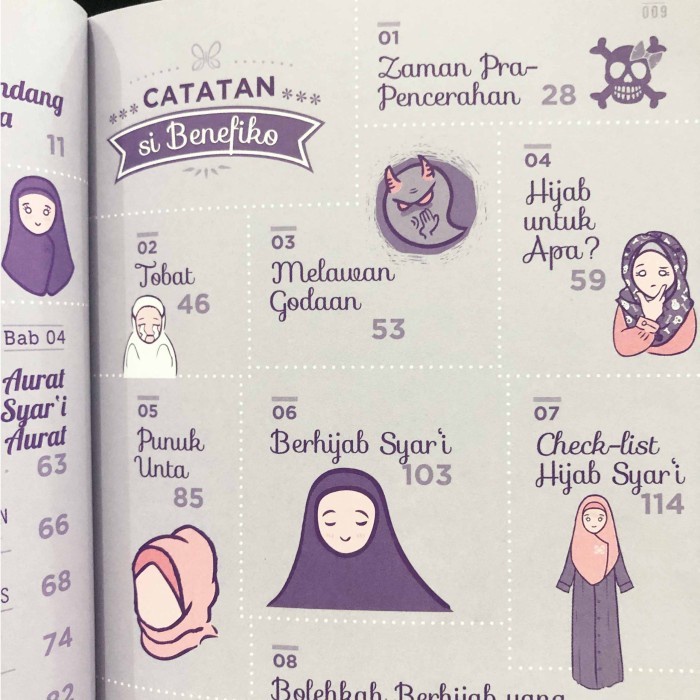 ndang
a
11
Bab 04
Aurat
Syar'i
Aurat
63
N
66
S
68
74
82
009
CATATAN
si Benefiko
01
Zaman Pra-
Pencerahan 28
02
Tobat
46
03
Melawan
Godaan
53
04
Hijab
untuk
Apa?
59
05
Punuk
Unta
85
06
Berhijab Syar'i
103
07
Check-list
Hijab Syar'i
114
08
Bolehkah Berhijab yang